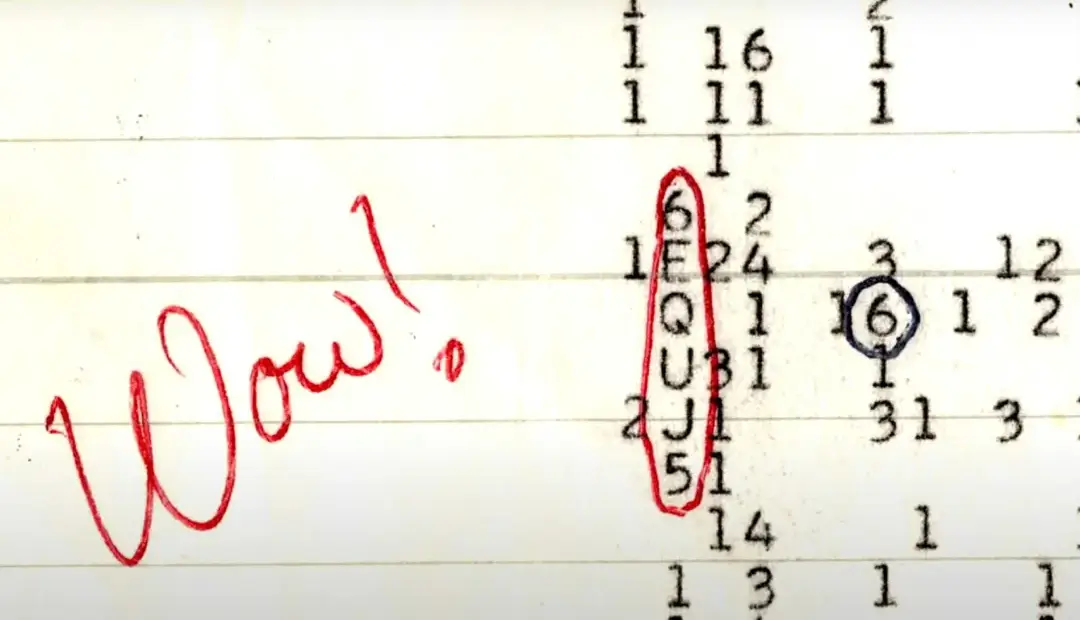 1 2
1 16 1
1 11 1
1
6 2
1 E 2 4 3 1 2
Q 1 1 6 1 2
U 3 1 1
2 J 1 3 1 3
5 1
1 4 1
1 3 1 1
Wow!